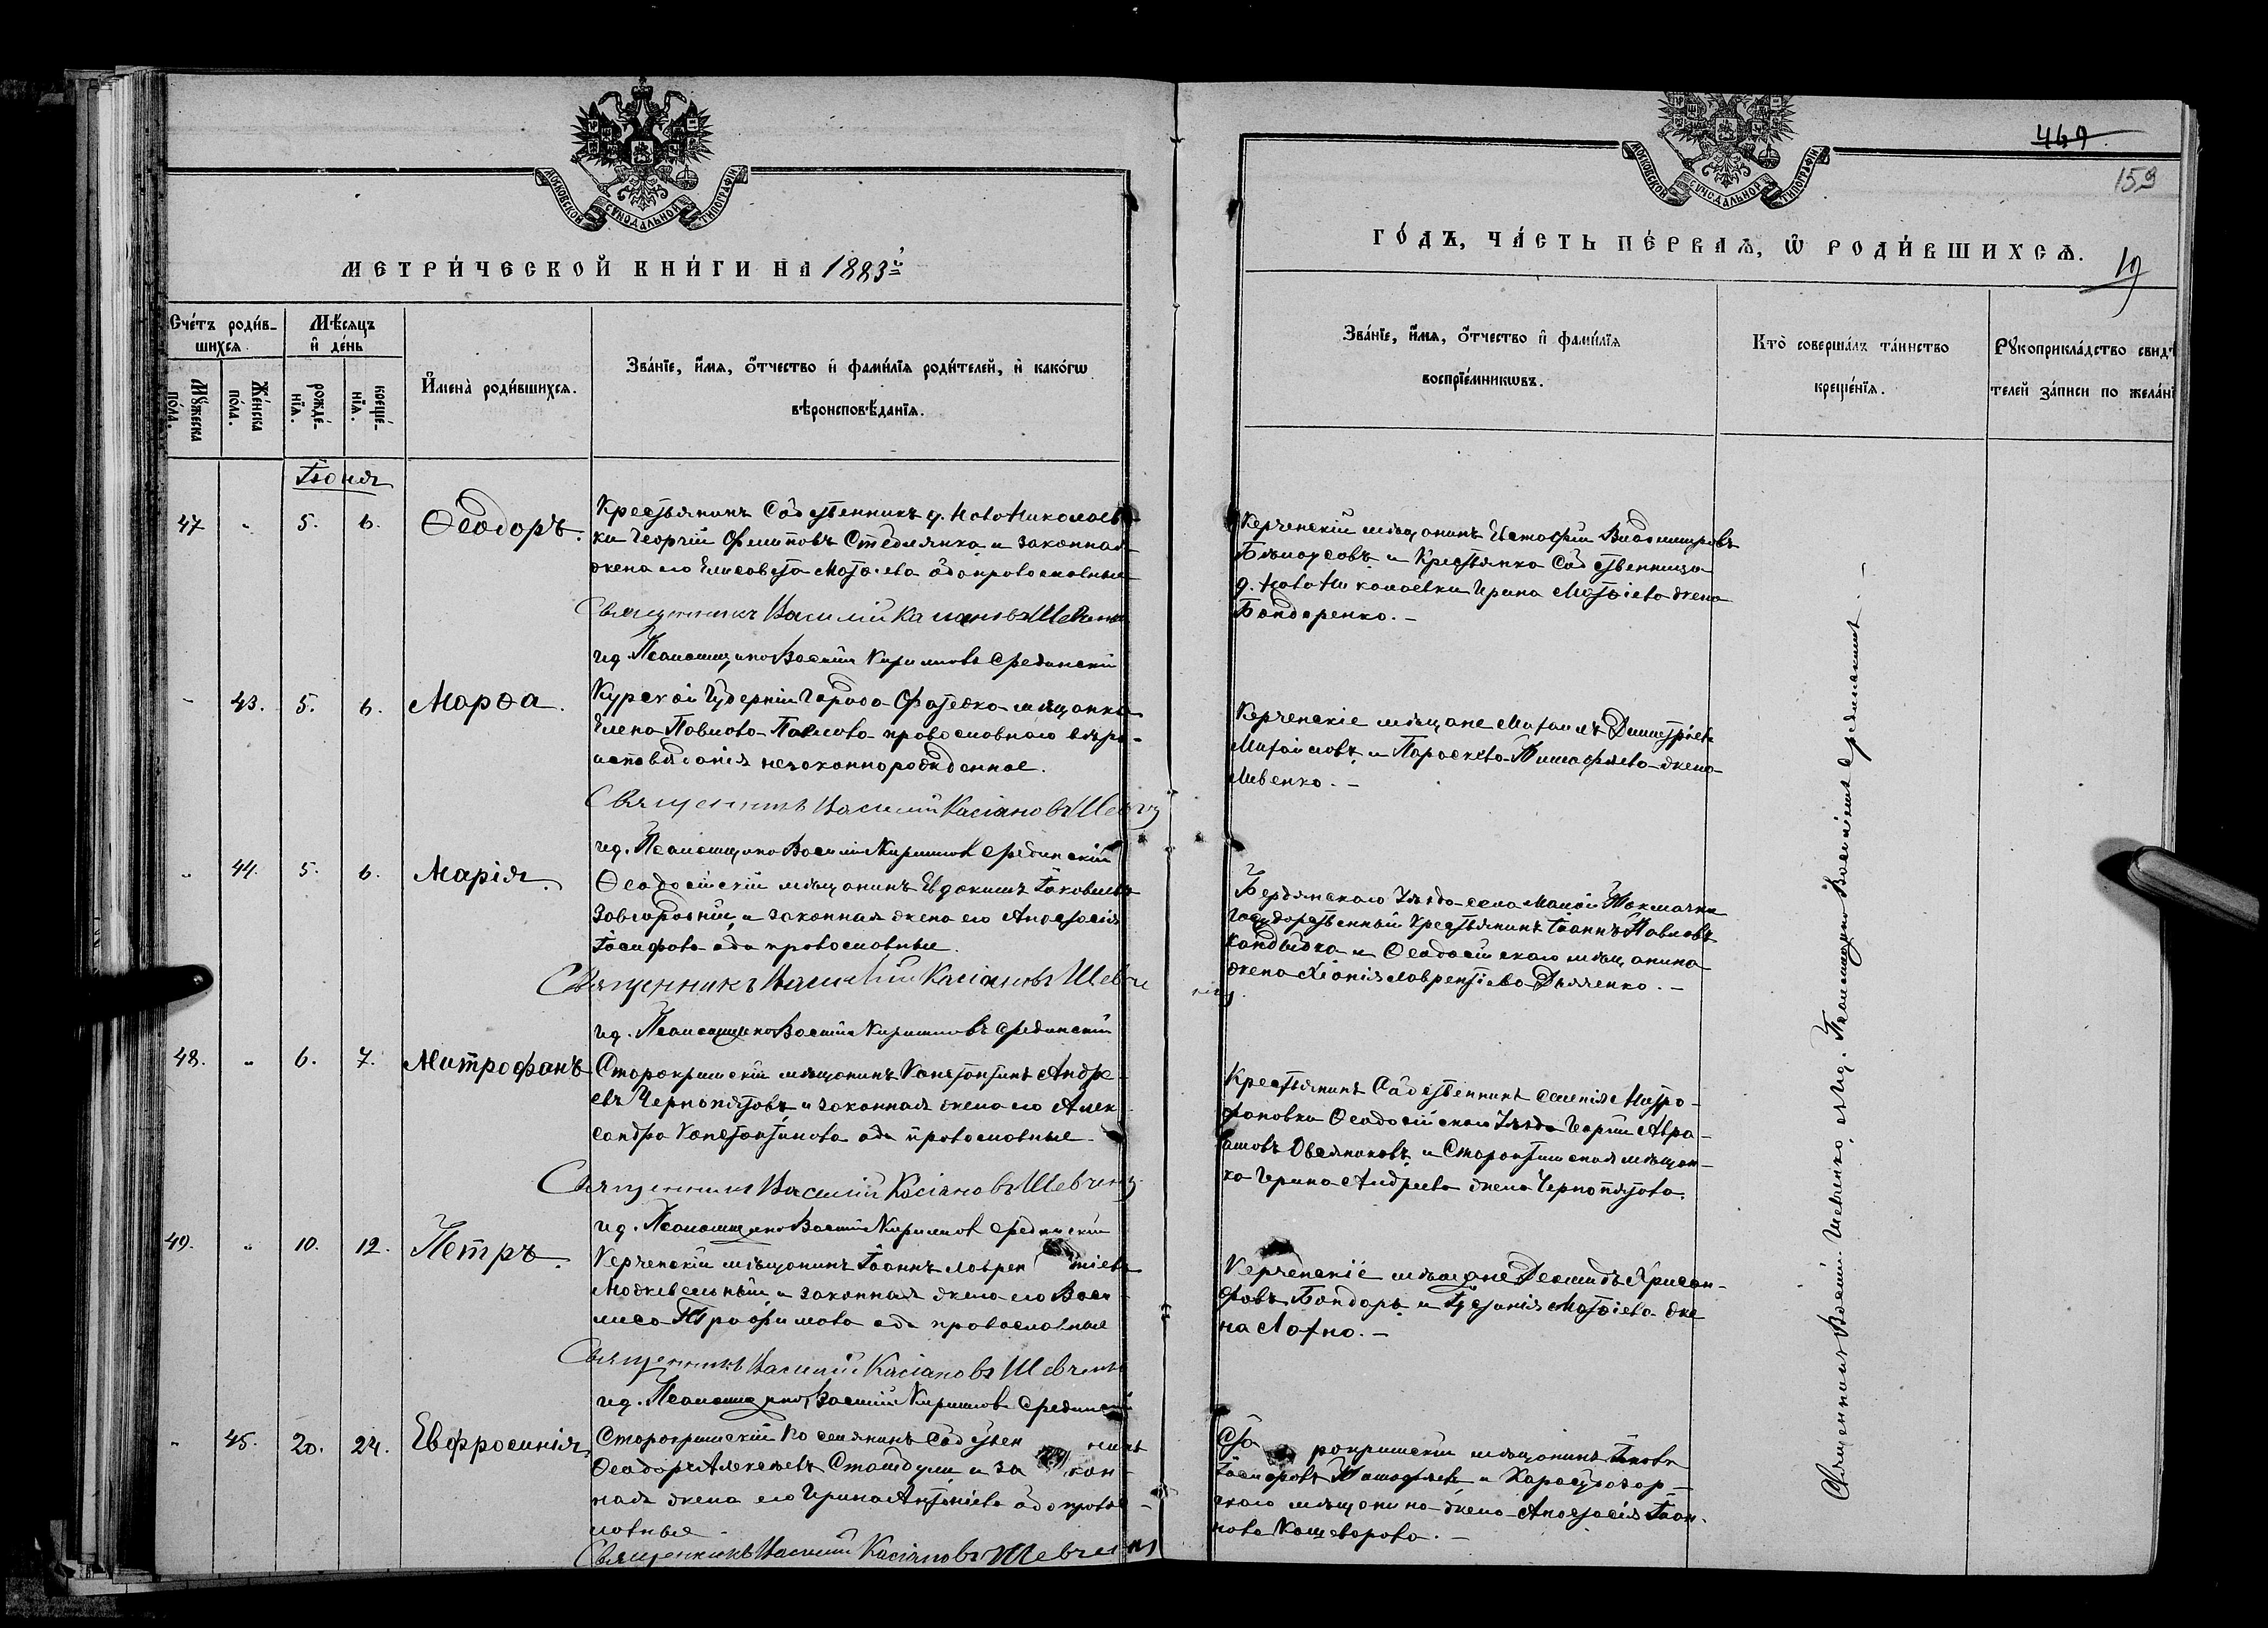 МОСКОВСКОЙ СѴНОДАЛЬНОЙ ТИПОГРАФІИ
МЕТРИ́ЧЕСКОЙ КНИ́ГИ НА 1883й
Сче́тъ роди́в-
шихсѧ.
Мѣ́сѧцъ
и҆ де́нь
Мꙋ́жеска
по́ла.
Же́нска
по́ла.
рожде́-
нїѧ.
креще́-
нїѧ.
И҆мена̀ роди́вшихсѧ.
Зва́нїе, и҆́мѧ, ѻ҆́тчество и҆ фами́лїѧ роди́телей, и҆ како́гѡ
вѣроисповѣ́данїѧ.
Іюня
47 " 5. 6. Ѳеодоръ.
Крестьянинъ Собственникъ д. НовоНиколаев-
ки Георгій Филиповъ Стеблянка и законная
жена его Елисавета Матѳіева оба православные
Священникъ Василій Касіановъ Шевченко
ид. Псаломщика Василій Кириловъ Срединскій
" 43. 5. 6. Марѳа.
Курской Губерніи Города Фатежа мѣщанка
Елена Павлова Павлова православнаго вѣро-
исповѣданія незаконнорожденное.
Священникъ Василій Касіановъ Шевч
ид. Псаломщика Василій Кириловъ Срединскій
" 44. 5. 6. Марія.
Ѳеодосійскій мѣщанинъ Евдокимъ Іаковлевъ
Завгородній и законная жена его Анастасія
Іосифова оба православные.
Священникъ Василій Касіановъ Шевченко
ид. Псаломщика Василій Кириловъ Срединскій
48. " 6. 7. Митрофанъ
Старокримскій мѣщанинъ Константинъ Андре-
евъ Чернопятовъ и законная жена его Алек
сандра Константинова оба православные
Священникъ Василій Касіановъ Шевченко
ид. Псаломщика Василій Кириловъ Срединскій
49. " 10. 12. Петръ.
Керченскій мѣщанинъ Іоаннъ Лаврентіевъ
и законная жена его Васи
лиса Трофимова оба православные
Священникъ Василій Касіановъ Шевченко
ид. Псаломщика Василій Кириловъ Срединскій
" 45. 20. 24. Евфросинія
Старокримскій Поселянинъ Собственникъ
Ѳеодоръ Алексѣевъ и закон-
ная жена его Ирина Антоніева оба правос-
лавные
Священникъ Василій Касіановъ Шевченко
МОСКОВСКОЙ СѴНОДАЛЬНОЙ ТИПОГРАФІИ
467
159
ГО́ДЪ, ЧА́СТЬ ПЕ́РВАѦ, Ѡ҆ РОДИ́ВШИХСѦ.
19
Зва́нїе, и҆́мѧ, ѻ҆́тчество и҆ фами́лїѧ
воспрїе́мникѡвъ.
Кто̀ соверша́лъ та́инство
креще́нїѧ.
Рꙋкоприкла́дство свидѣ́
телей за́писи по жела́нї
Керченскій мѣщанинъ Евстафій Владимировъ
Бѣлоусовъ и Крестьянка Собственница
д. НовоНиколаевки Ирина Матѳіева жена
Бондаренко. -
Керченскіе мѣщане Михаилъ Димитріевъ
Михайловъ и Параскева жена
Ливенко. -
Бердянскаго Уѣзда села Малой Токмачки
Государственный Крестьянинъ Іоаннъ Павловъ
и Ѳеодосійскаго мѣщанина
жена Хіонія Лаврентіева Дьяченко. -
Крестьянинъ Собственникъ селенія Митро-
фановки Ѳеодосійскаго Уѣзда Георгій Авра-
амовъ Овсяниковъ и Старокримская мѣщан-
ка Ирина Андреева жена Чернопятова.
Керченскіе мѣщане Хрисан-
фовъ Бондарь и Матѳіева же
на Лахно. -
Старокримскій мѣщанинъ Іаковъ
Іосифовъ и Карасубазар-
скаго мѣщанина жена Анастасія Іоан-
нова Кашеварова. -
Священникъ Василій Шевченко, съ ид. Псаломщика Василіемъ Срединскимъ.